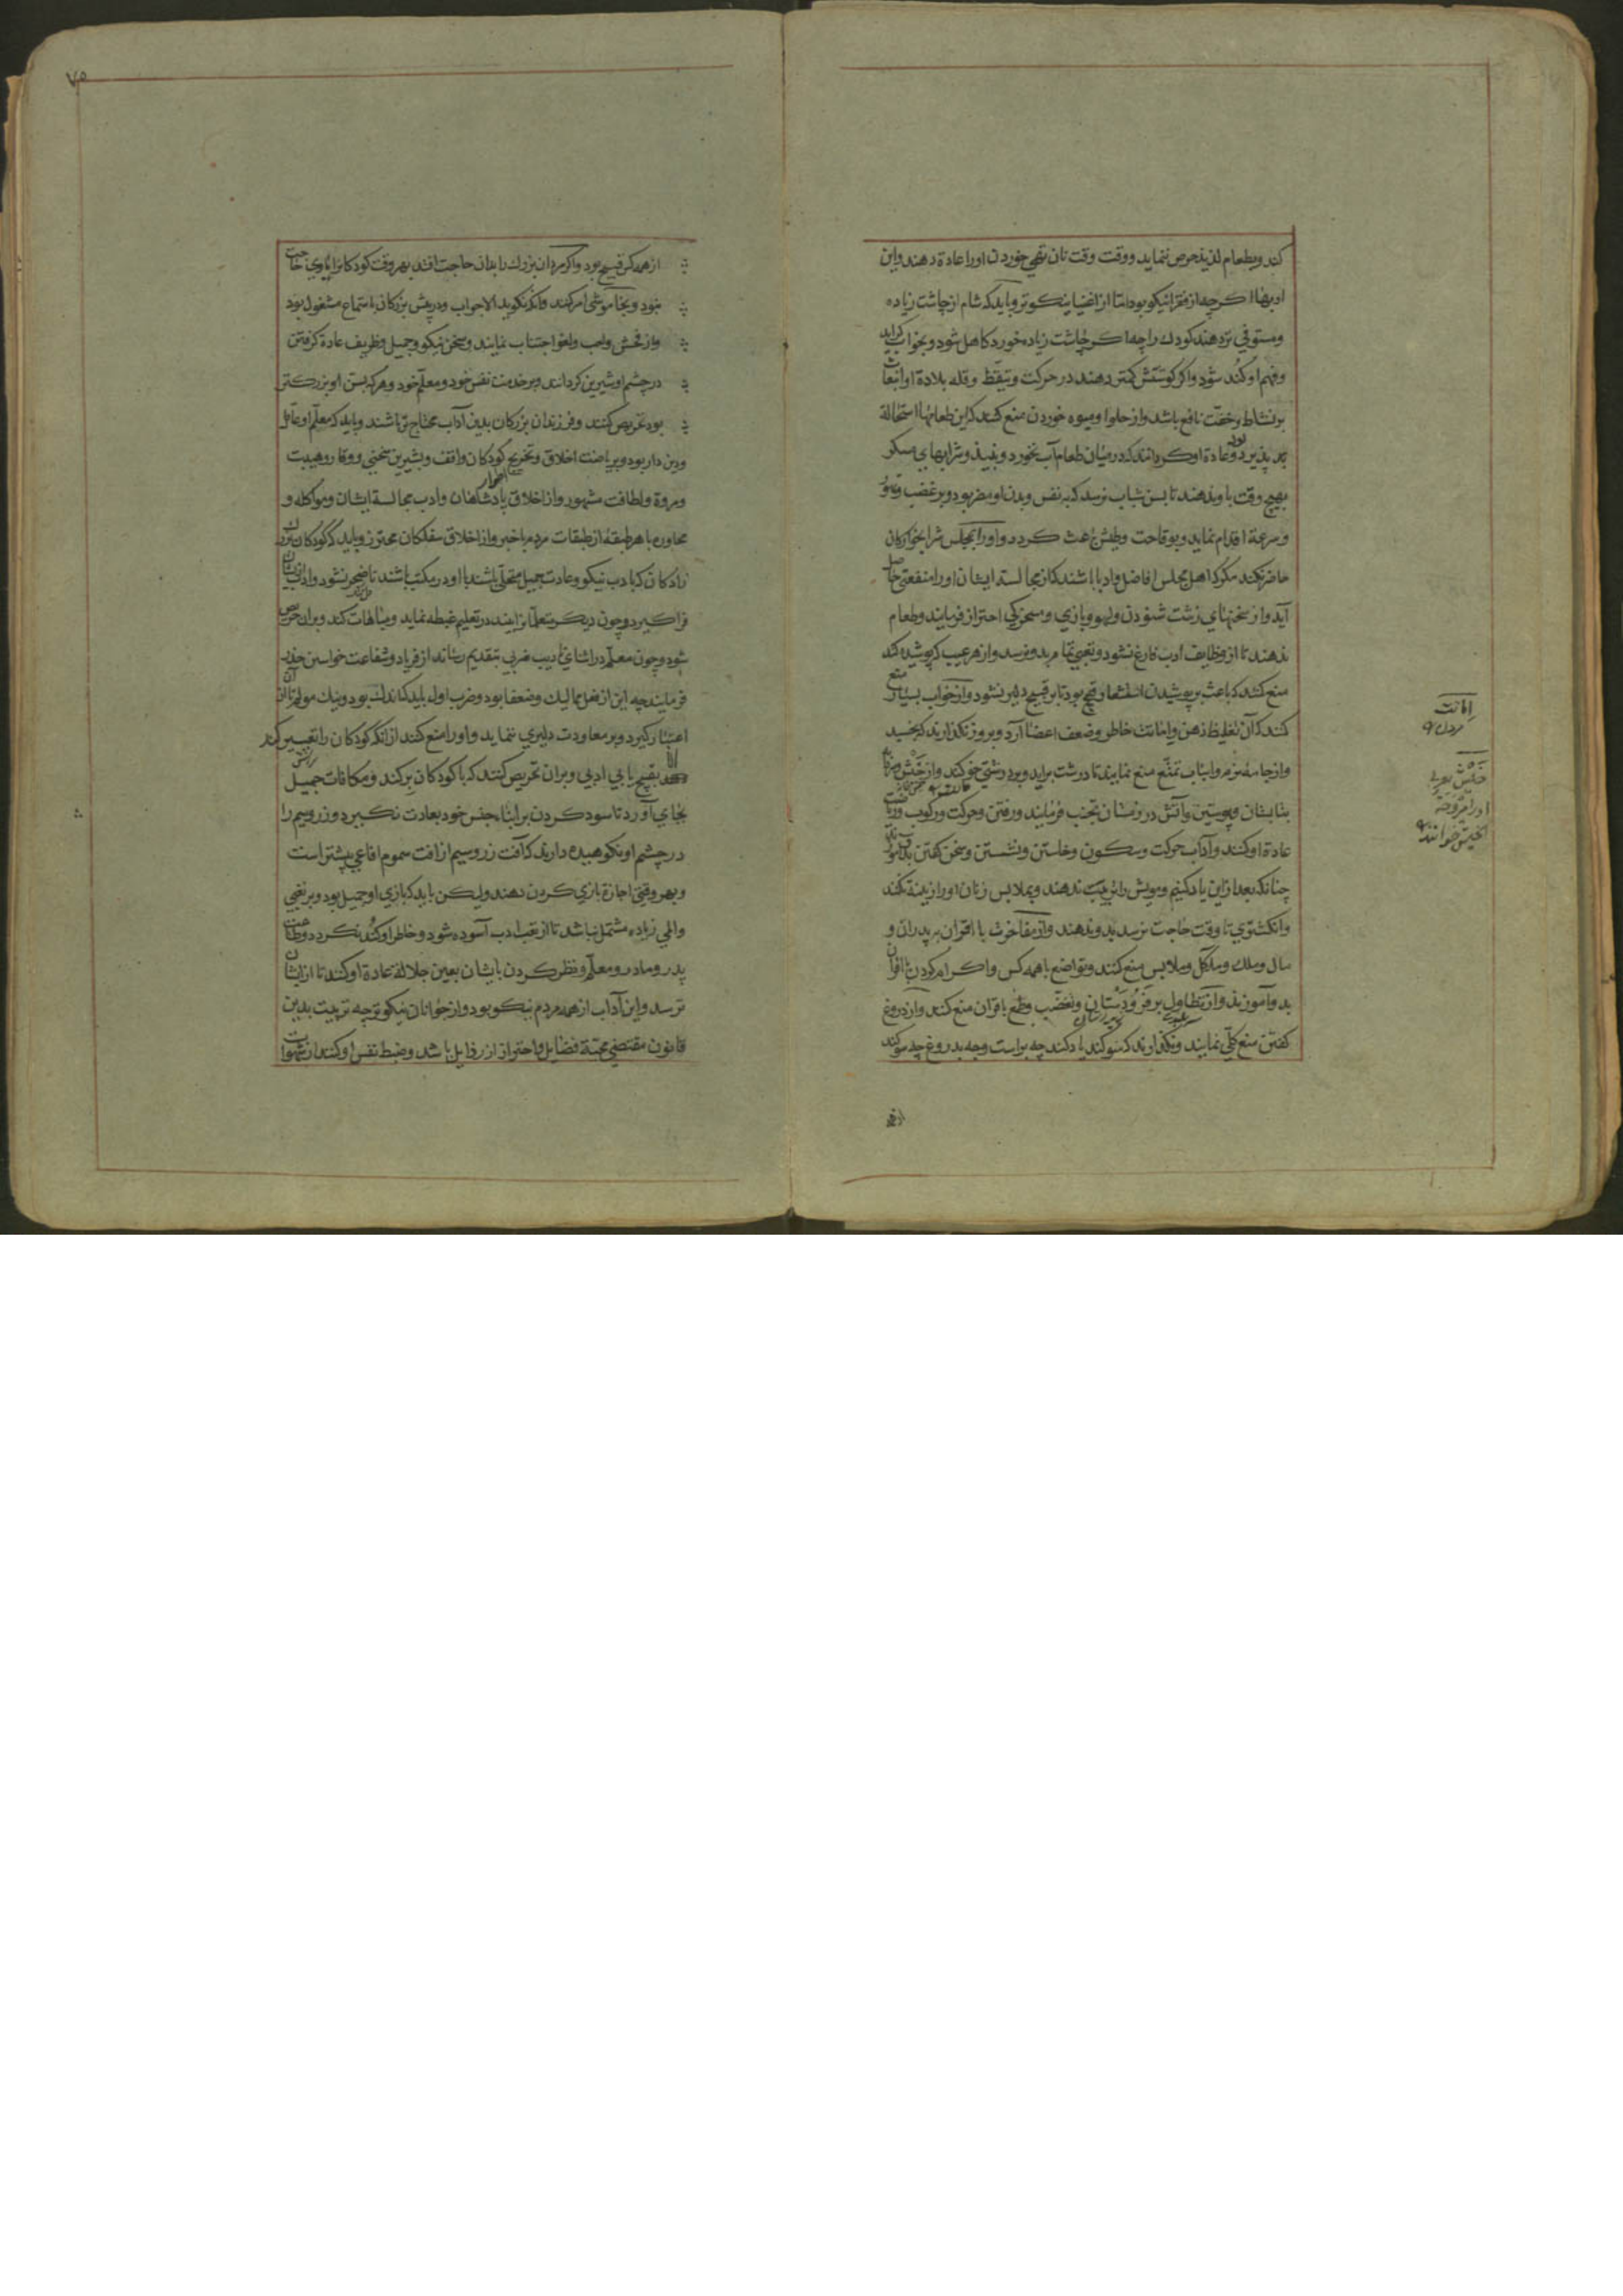 کند وبطعام لذیذ حرص ننماید ووقت وقت نان تهی خوردن اورا عادة دهند واین
ادبها اکرچه از فقرا نیکو بود اما از اغنیا نیکوتر وباید که شام از چاشت زیاده
ومستوفی تر دهند کودك را چه اکر چاشت زیاده خورد کاهل شود وبخواب کراید
وفهم او کند شود واکر کوشتش کمتر دهند در حرکت وتیقظ وقله بلادة او وانبعاث
بر نشاط وخفت نافع باشد واز حلوا ومیوه خوردن منع کنند که این طعامها استحالة
پذیر بود وعادة او کردانند که در میان طعام آب نخورد ونبیذ وشرابهای مسکر
بهیچ وقت باو ندهند تا بسن شباب نرسد که به نفس وبدن او مضر بود وبر غضب وتهور
وسرعة اقدام نماید وبوقاحت وطیش باعث کردد واورا بمجلس شرابخوارکان
حاضر نکنند مکر که اهل مجلس افاضل وادبا باشند که از مجالسة ایشان اورا منفعتی حاصل
آید واز سخنهای زشت شنودن ولهو وبازی ومسخرکی احتراز فرمایند وطعام
ندهند تا از وظایف ادب فارغ نشود وتعبی تمام بدو نرسد واز هر عیب که پوشیده کند
منع کنند که باعث بر پوشیدن استشعار قبح بود تا بر قبیح دلیر نشود واز خواب بسیار منع
کنند که آن تغلیظ ذهن واماتت خاطر وضعف اعضا آرد وبروز نکذارند که بخسبد
واز جامه نرم واسباب تمتع منع نمایند تا درشت برآید وبر درشتی خو کند واز خیش وسردابه
بتابستان وپوستین وآتش در زمستان تجنب فرمایند ورفتن وحرکت ورکوب وریاضت
عادة او کنند وآداب حرکت وسکون وخاستن ونشستن وسخن کفتن بدو آموزند
چنانکه بعد از این یاد کنیم ومویش را تربیت ندهند وبملابس زنان اورا زینة نکنند
وانکشتری تا وقت حاجت نرسد بدو ندهند واز مفاخرت با اقران بر پدران و
مال وملك ومآکل وملابس منع کنند وتواضع با همه کس واکرام کردن با اقران
بدو آموزند واز تطاول بر فرودستان وتعصب وطمع باقران منع کنند واز دروغ
کفتن منع کلی نمایند ونکذارند که سوکند یاد کند چه براست وچه بدروغ چه سوکند
از همه
اماتت
خیش
۷۵
از همه کس قبیح بود واکر مردان بزرك را بدان حاجت افتد بهر وقت کودکانرا باری حاجت
نبود وبخاموشی امر کنند وآنکه نکوید الا جواب ودر پیش بزرکان باستماع مشغول بود
واز فحش ولعب ولغو اجتناب نمایند وسخن نیکو وجمیل وظریف عادة کرفتن
در چشم او شیرین کردانند وبر خدمت نفس خود ومعلم خود وهر که بسن از او بزرکتر
بود تحریص کنند وفرزندان بزرکان بدین آداب محتاج تر باشند وباید که معلم او عاقل
ودین دار بود وبر ریاضت اخلاق وتخریج کودکان واقف وبشیرین سخنی ووقار وهیبت
ومروة ولطافت مشهور واز اخلاق پادشاهان وادب مجالسة ایشان ومواکله و
محاوره با هر طبقه از طبقات مردم باخبر واز اخلاق سفلکان محترز وباید که کودکان بزرك
زادکان که بادب نیکو وعادت جمیل متحلی باشند با او در مکتب باشند تا ضجر نشود وادب از ایشان
فرا کیرد وچون دیکر متعلمانرا بیند در تعلیم غبطه نماید ومباهات کند وبران حریص
شود وچون معلم در اثنای تأدیب ضربی بتقدیم رساند از فریاد وشفاعت خواستن حذر
فرمایند چه این از فعل ممالیك وضعفا بود وضرب اول باید که اندك بود ونیك مولم تا از آن
اعتبار کیرد وبر معاودت دلیری ننماید واورا منع کنند از آنکه کودکان را تعییر کند
الا بقبیح یا بی ادبی وبران تحریص کنند که با کودکان بر کند ومکافات جمیل
بجای آورد تا سود کردن بر ابناء جنس خود بعادت نکیرد وزر وسیم را
در چشم او نکوهیده دارند که آفت زر وسیم از آفت سموم افاعی بیشتر است
وبهر وقتی اجازة بازی کردن دهند ولیکن باید که بازی او جمیل بود وبر تعبی
والمی زیاده مشتمل نباشد تا از تعب ادب آسوده شود وخاطر او کند نکردد وطاعت
پدر ومادر ومعلم ونظر کردن بایشان بعین جلالة عادة او کنند تا از ایشان
ترسد واین آداب از همه مردم نیکو بود واز جوانان نیکوتر چه تربیت بدین
قانون مقتضی محبة فضایل واحتراز از رذایل باشد وضبط نفس او کنند از شهوات